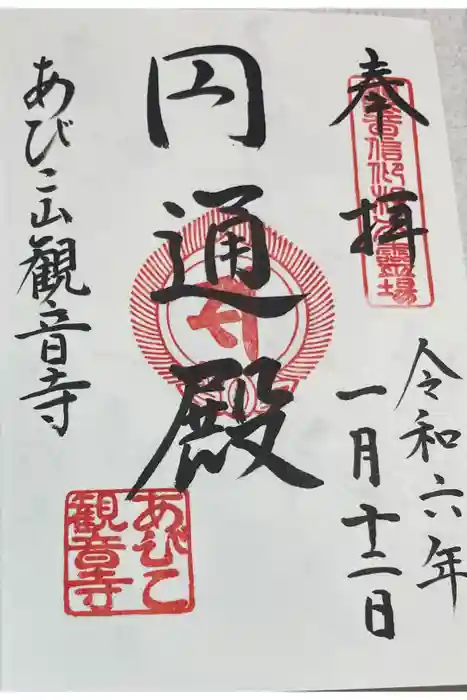 奉拝
令和六年
一月十二日
円通殿
あびこ山観音寺
あびこ
観音寺